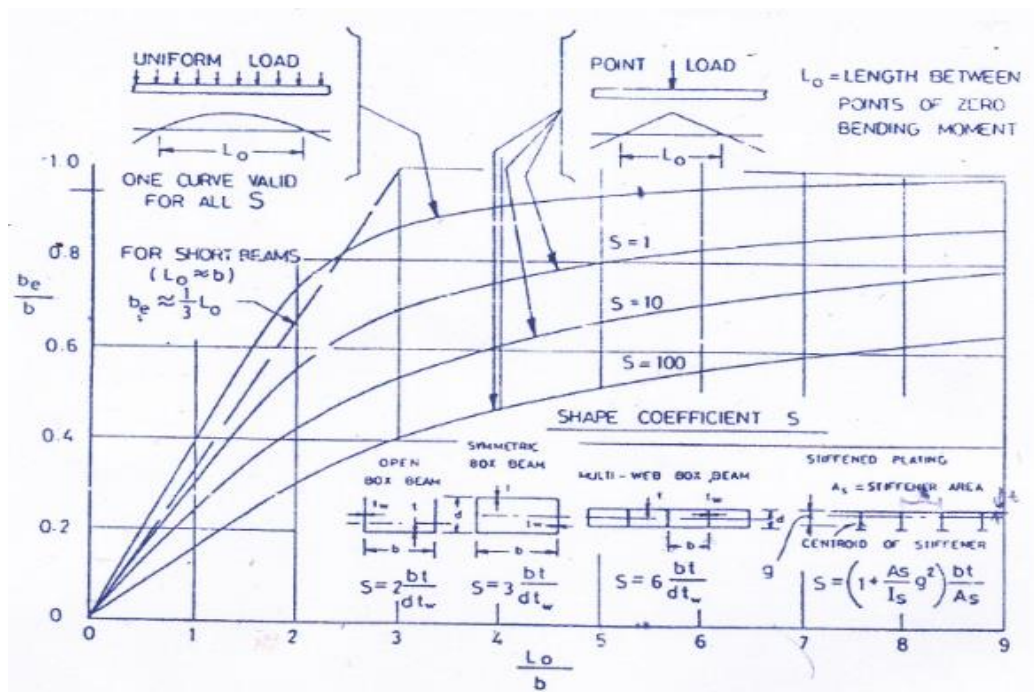 UNIFORM LOAD
L₀
ONE CURVE VALID
FOR ALL S
POINT LOAD
L₀
L₀ = LENGTH BETWEEN
POINTS OF ZERO
BENDING MOMENT
FOR SHORT BEAMS
(L₀ ≈ b)
bₑ ≈ 1/3 L₀
S = 1
S = 10
S = 100
bₑ/b
1.0
0.8
0.6
0.4
0.2
0
SHAPE COEFFICIENT S
OPEN
BOX BEAM
t_w
t
b
S = 2 bt/dt_w
SYMMETRIC
BOX BEAM
t
d
t_w
b
S = 3 bt/dt_w
MULTI-WEB BOX BEAM
t
t_w
d
b
S = 6 bt/dt_w
STIFFENED PLATING
A_s = STIFFENER AREA
CENTROID OF STIFFENER
g
S = (1 + A_s/I_s g²) bt/A_s
0 1 2 3 4 5 6 7 8 9
L₀/b